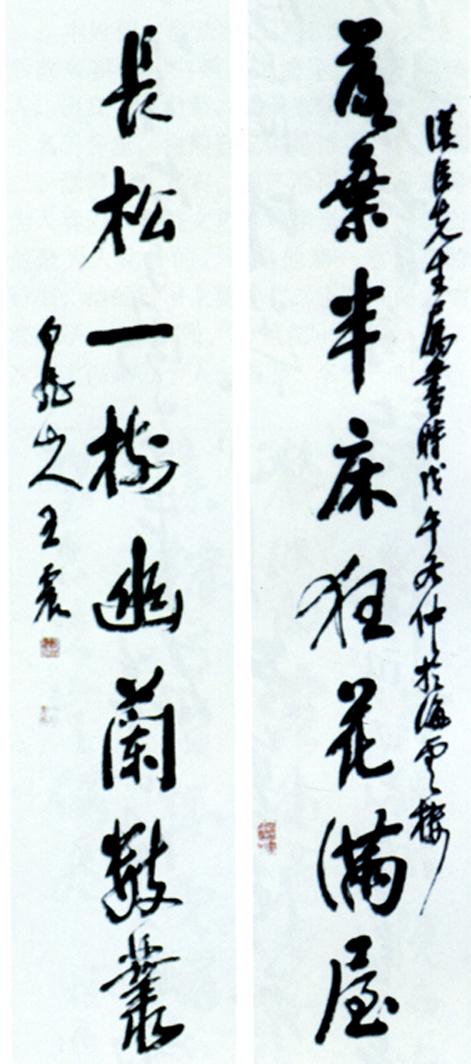 漢臣先生属書時戊午冬仲於海雲楼
落葉半床狂花滿屋
長松一樹幽蘭數叢
白龍山人王震